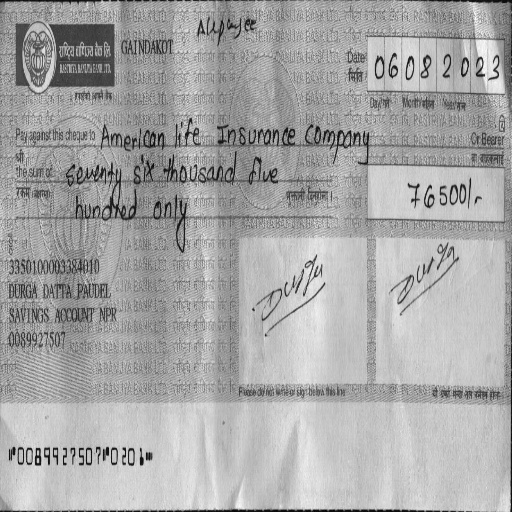 A/c payee
राष्ट्रिय वाणिज्य बैंक लि.
RASTRIYA BANIJYA BANK LTD.
GAINDAKOT
Date
मिति
06082023
Day/गते Month/महिना Year/साल
Pay against this cheque to American life Insurance Company
Or Bearer
श्री
the sum of seventy six thousand five
hundred only
76500/-
3350100003384010
DURGA DATTA PAUDEL
SAVINGS ACCOUNT NPR
0089927507
Durga
Durga
Please do not write or sign below this line
⑈0089927507⑈0201⑈